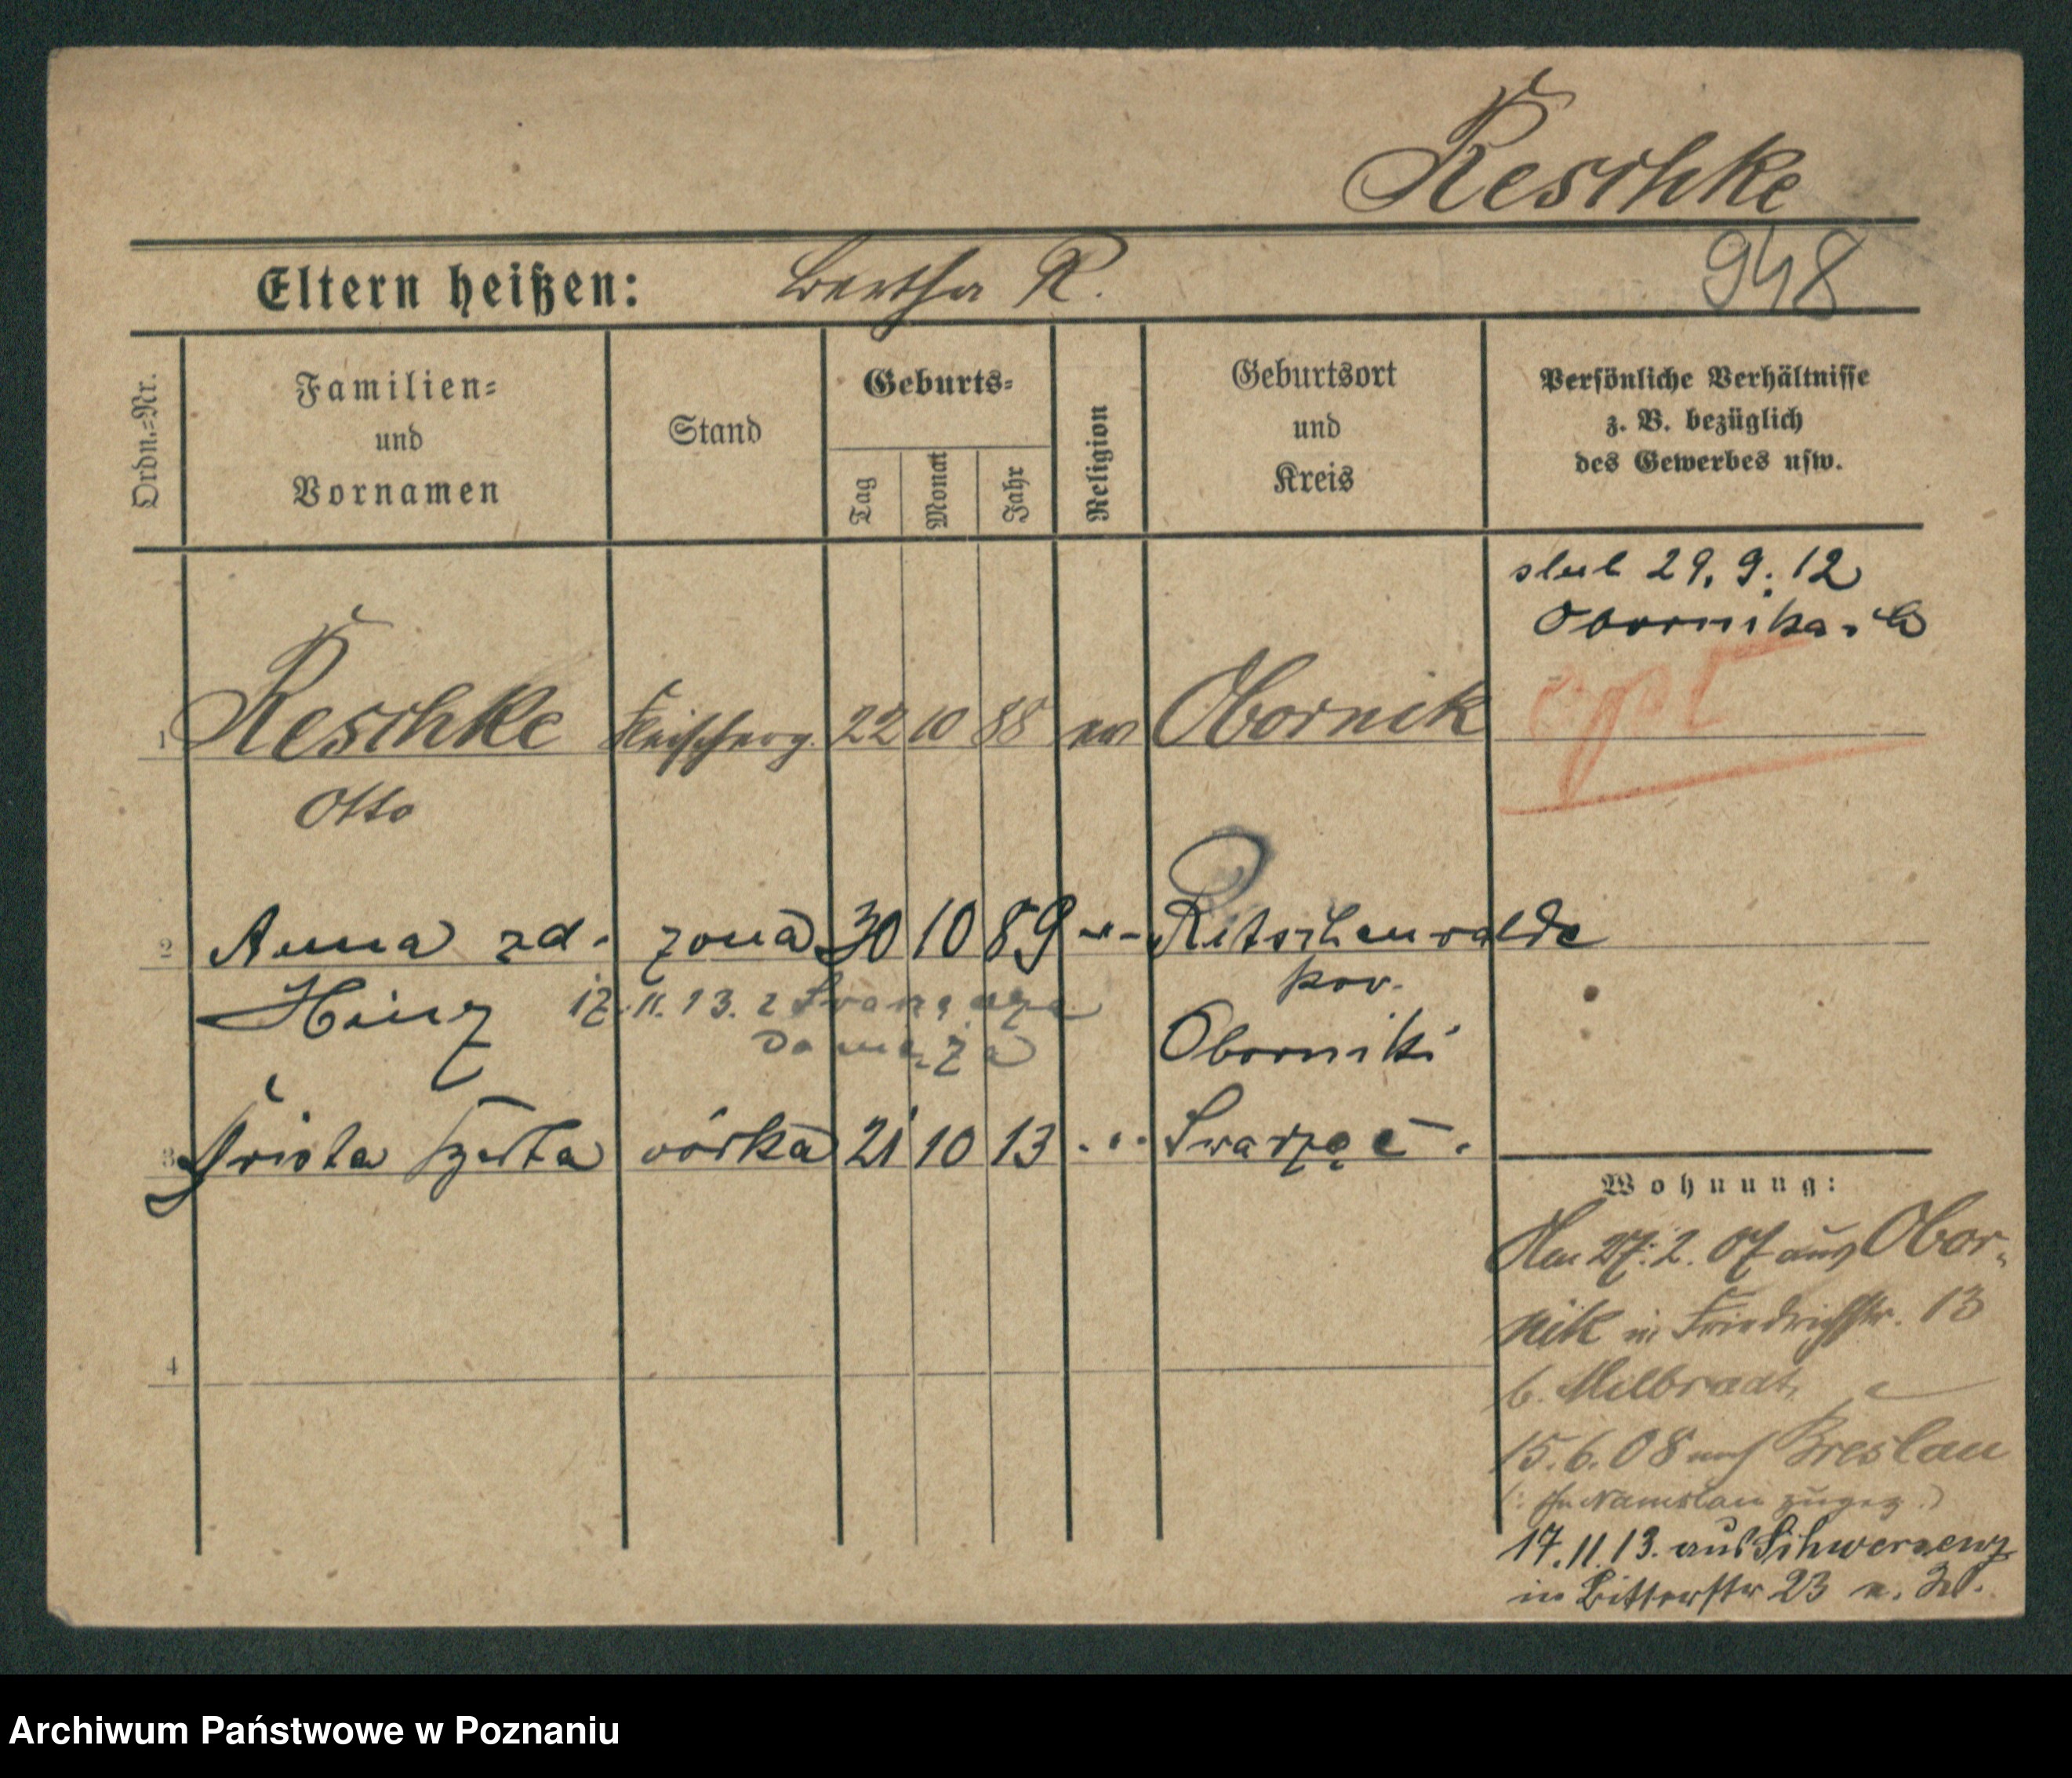 Reschke
Eltern heißen: Bertha R. 948
Ordn.=Nr.
Familien=
und
Vornamen
Stand
Geburts=
Tag
Monat
Jahr
Religion
Geburtsort
und
Kreis
Persönliche Verhältnisse
z. B. bezüglich
des Gewerbes usw.
slub 29. 9. 12
Obornika
1 Reschke Fleischerg. 22 10 88 ev Obornik
Otto
2 Anna zd. żona 30 10 89 -"- Ritschenwalde
Hinz 17. 11. 13. z
pow.
do męża
Oborniki
3 Herta córka 21 10 13 Swarzęc.
4
Wohnung:
Am 27. 2. 07 aus Obor-
nik in Friedrichstr. 13
b. Milbradt
15. 6. 08 nach Breslau
Namslau zugez.)
17. 11. 13. aus Schwersenz
in Bitterstr 23
Archiwum Państwowe w Poznaniu